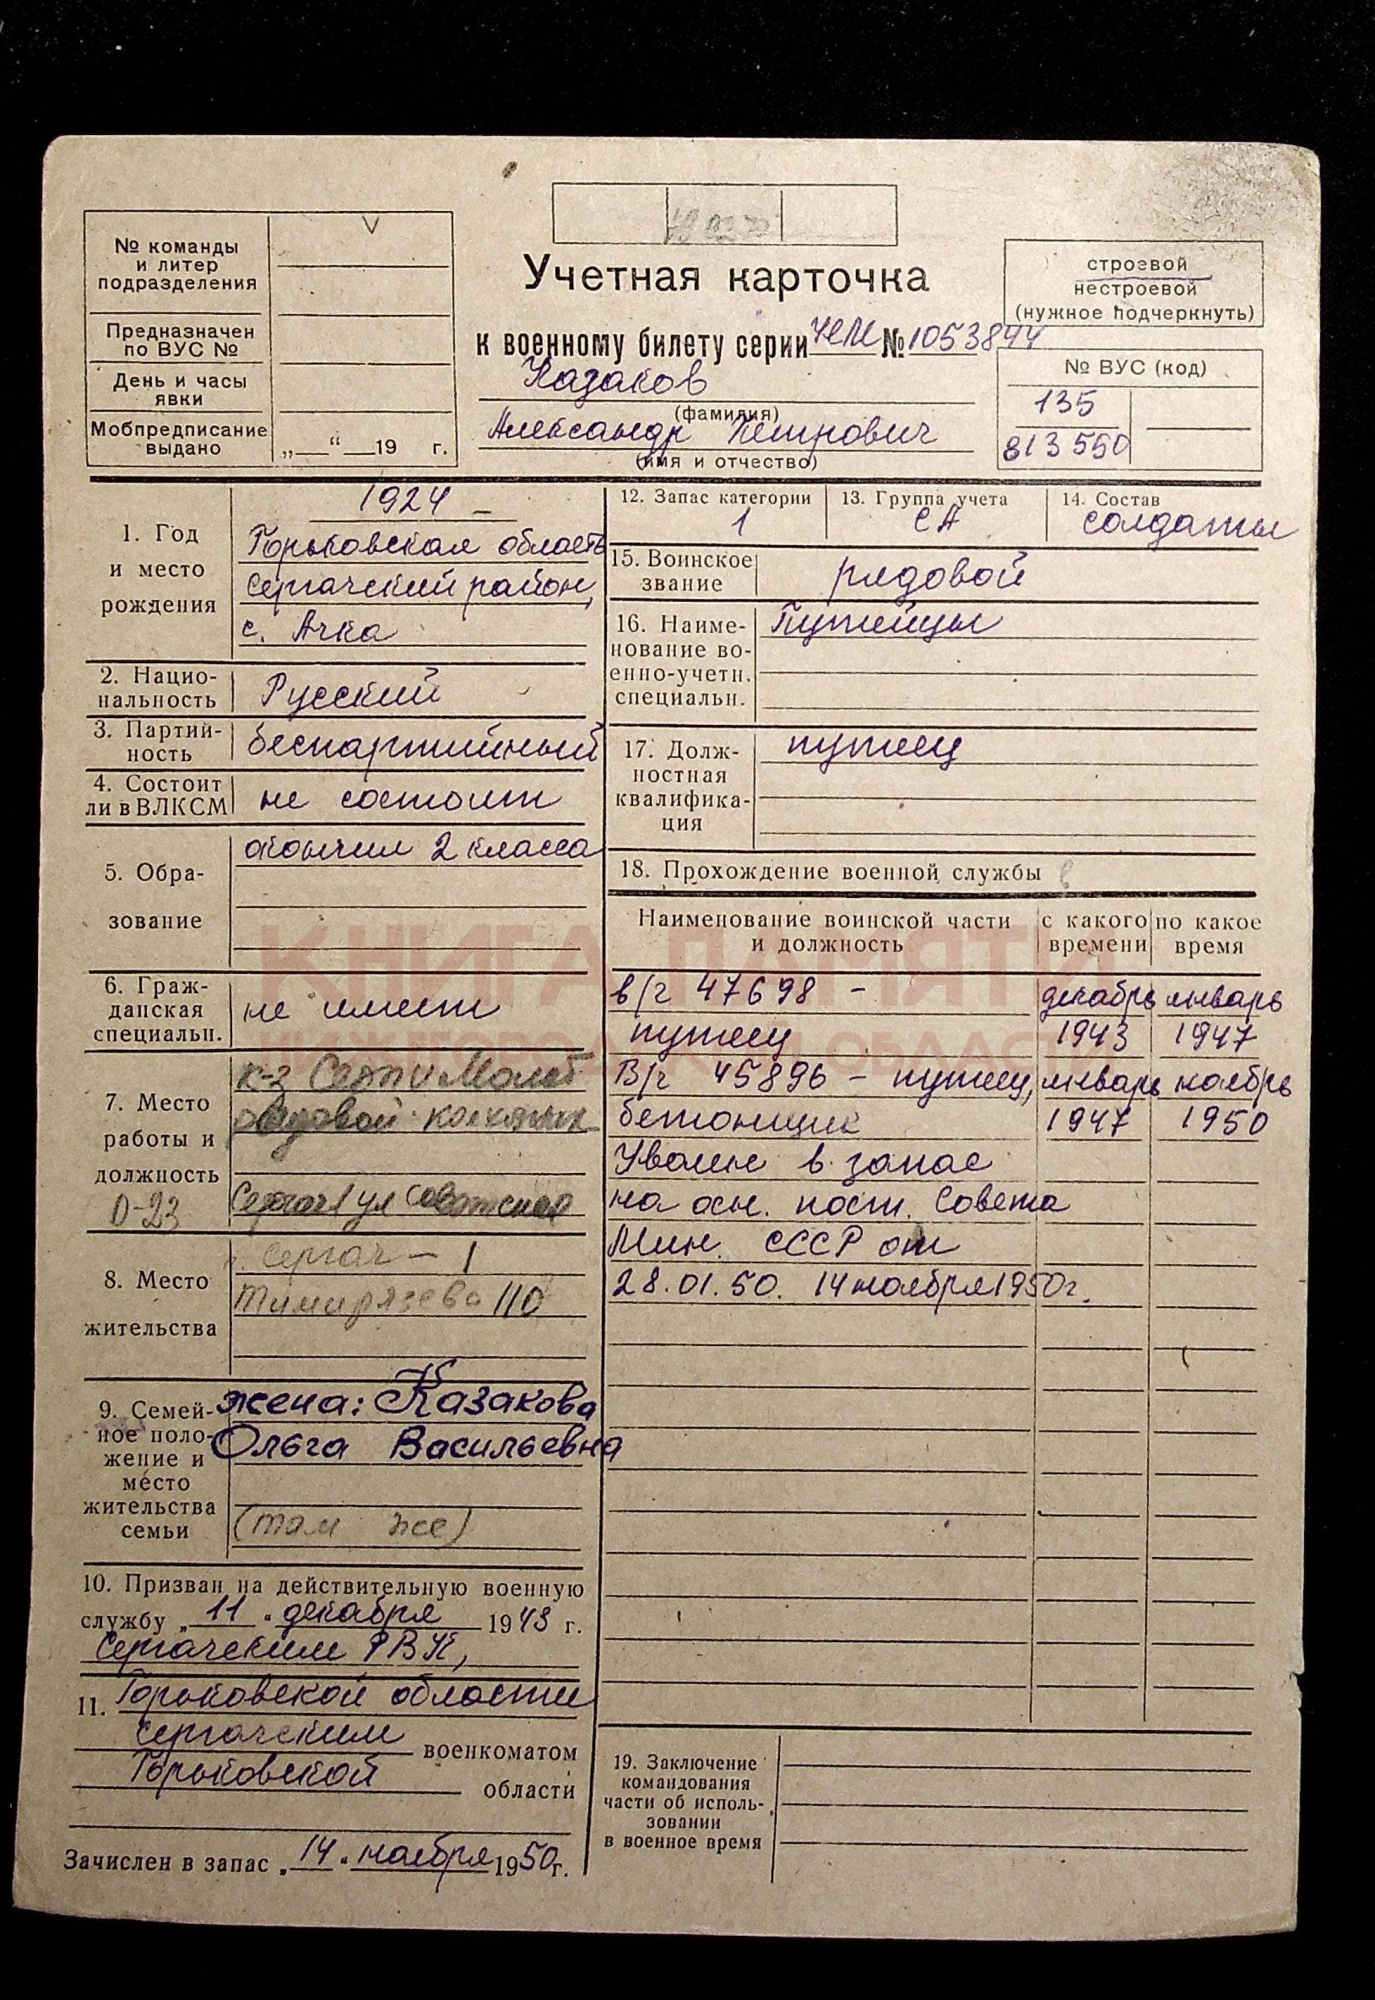 № команды
и литер
подразделения
Предназначен
по ВУС №
День и часы
явки
Мобпредписание
выдано
„ “ 19 г.
V
Учетная карточка
к военному билету серии № 1053844
Казаков
(фамилия)
Александр Петрович
(имя и отчество)
строевой
нестроевой
(нужное подчеркнуть)
№ ВУС (код)
135
813550
1. Год
и место
рождения
1924
Горьковская область
Сергачский район,
с. Ачка
2. Нацио-
нальность
Русский
3. Партий-
ность
беспартийный
4. Состоит
ли в ВЛКСМ
не состоит
5. Обра-
зование
окончил 2 класса
6. Граж-
данская
специальн.
не имеет
7. Место
работы и
должность
0-23
к-з Серп и Молот
рядовой колхозник
Сергач 1 ул Советская
8. Место
жительства
Сергач - 1
Тимирязева 110
9. Семей-
ное поло-
жение и
место
жительства
семьи
жена: Казакова
Ольга Васильевна
(там же)
10. Призван на действительную военную
службу „11“ декабря 1943 г.
Сергачским РВК,
11. Горьковской области
Сергачским
военкоматом
Горьковской
области
Зачислен в запас „14“ ноября 1950 г.
12. Запас категории
1
13. Группа учета
СА
14. Состав
солдаты
15. Воинское
звание
рядовой
16. Наиме-
нование во-
енно-учетн.
специальн.
Путейцы
17. Долж-
ностная
квалифика-
ция
путеец
18. Прохождение военной службы
Наименование воинской части
и должность
с какого
времени
по какое
время
в/ч 47698 - декабрь январь
путеец 1943 1947
В/ч 45896 - путеец, январь ноябрь
бетонщик 1947 1950
Уволен в запас
на осн. пост. Совета
Мин. СССР от
28.01.50. 14 ноября 1950г.
19. Заключение
командования
части об исполь-
зовании
в военное время
КНИГА ПАМЯТИ
НИЖЕГОРОДСКОЙ ОБЛАСТИ